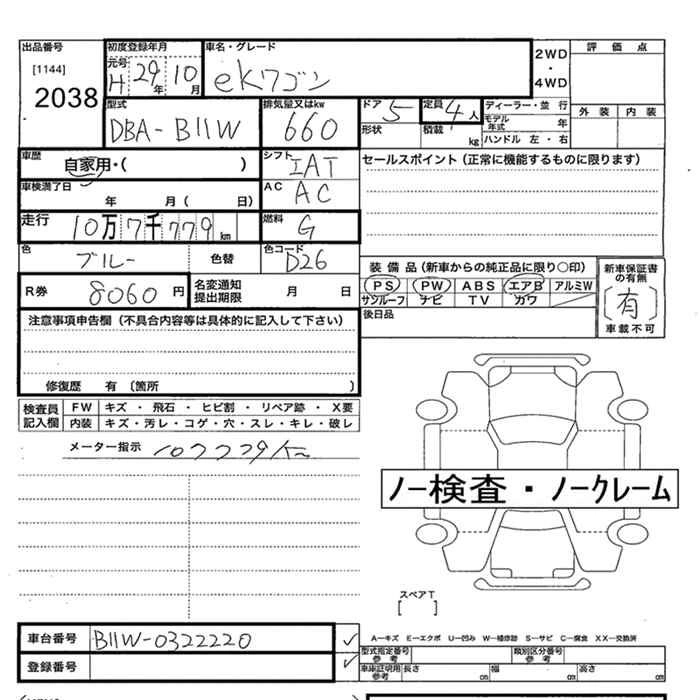 出品番号 [1144] 2038
初度登録年月 元号 H 29年 10月
車名・グレード eKワゴン
2WD・4WD
評価点
外装 内装
型式 DBA-B11W
排気量又はkw 660
ドア 5
形状
定員 4人
積載 kg
ディーラー・並行
モデル年式 年
ハンドル 左・右
車歴 自家用・( )
シフト IAT
セールスポイント (正常に機能するものに限ります)
車検満了日 年 月( 日)
AC AC
走行 10万7千779km
燃料 G
色 ブルー 色替
色コード D26
装備品 (新車からの純正品に限り○印)
PS PW ABS エアB アルミW
サンルーフ ナビ TV カワ
新車保証書の有無 [有] 車載不可
R券 8060円
名変通知提出期限 月 日
後日品
注意事項申告欄 (不具合内容等は具体的に記入して下さい)
修復歴 有 〔箇所 〕
検査員記入欄
FW キズ ・ 飛石 ・ ヒビ割 ・ リペア跡 ・ X要
内装 キズ・汚レ・コゲ・穴・スレ・キレ・破レ
メーター指示 107779km
ノー検査・ノークレーム
スペアT
[ ]
車台番号 B11W-0322220 ✓
登録番号 ✓
A―キズ E―エクボ U―凹み W―補修跡 S―サビ C―腐食 XX―交換済
型式指定番号 参考
類別区分番号 参考
車庫証明用 参考 長さ cm 幅 cm 高さ cm